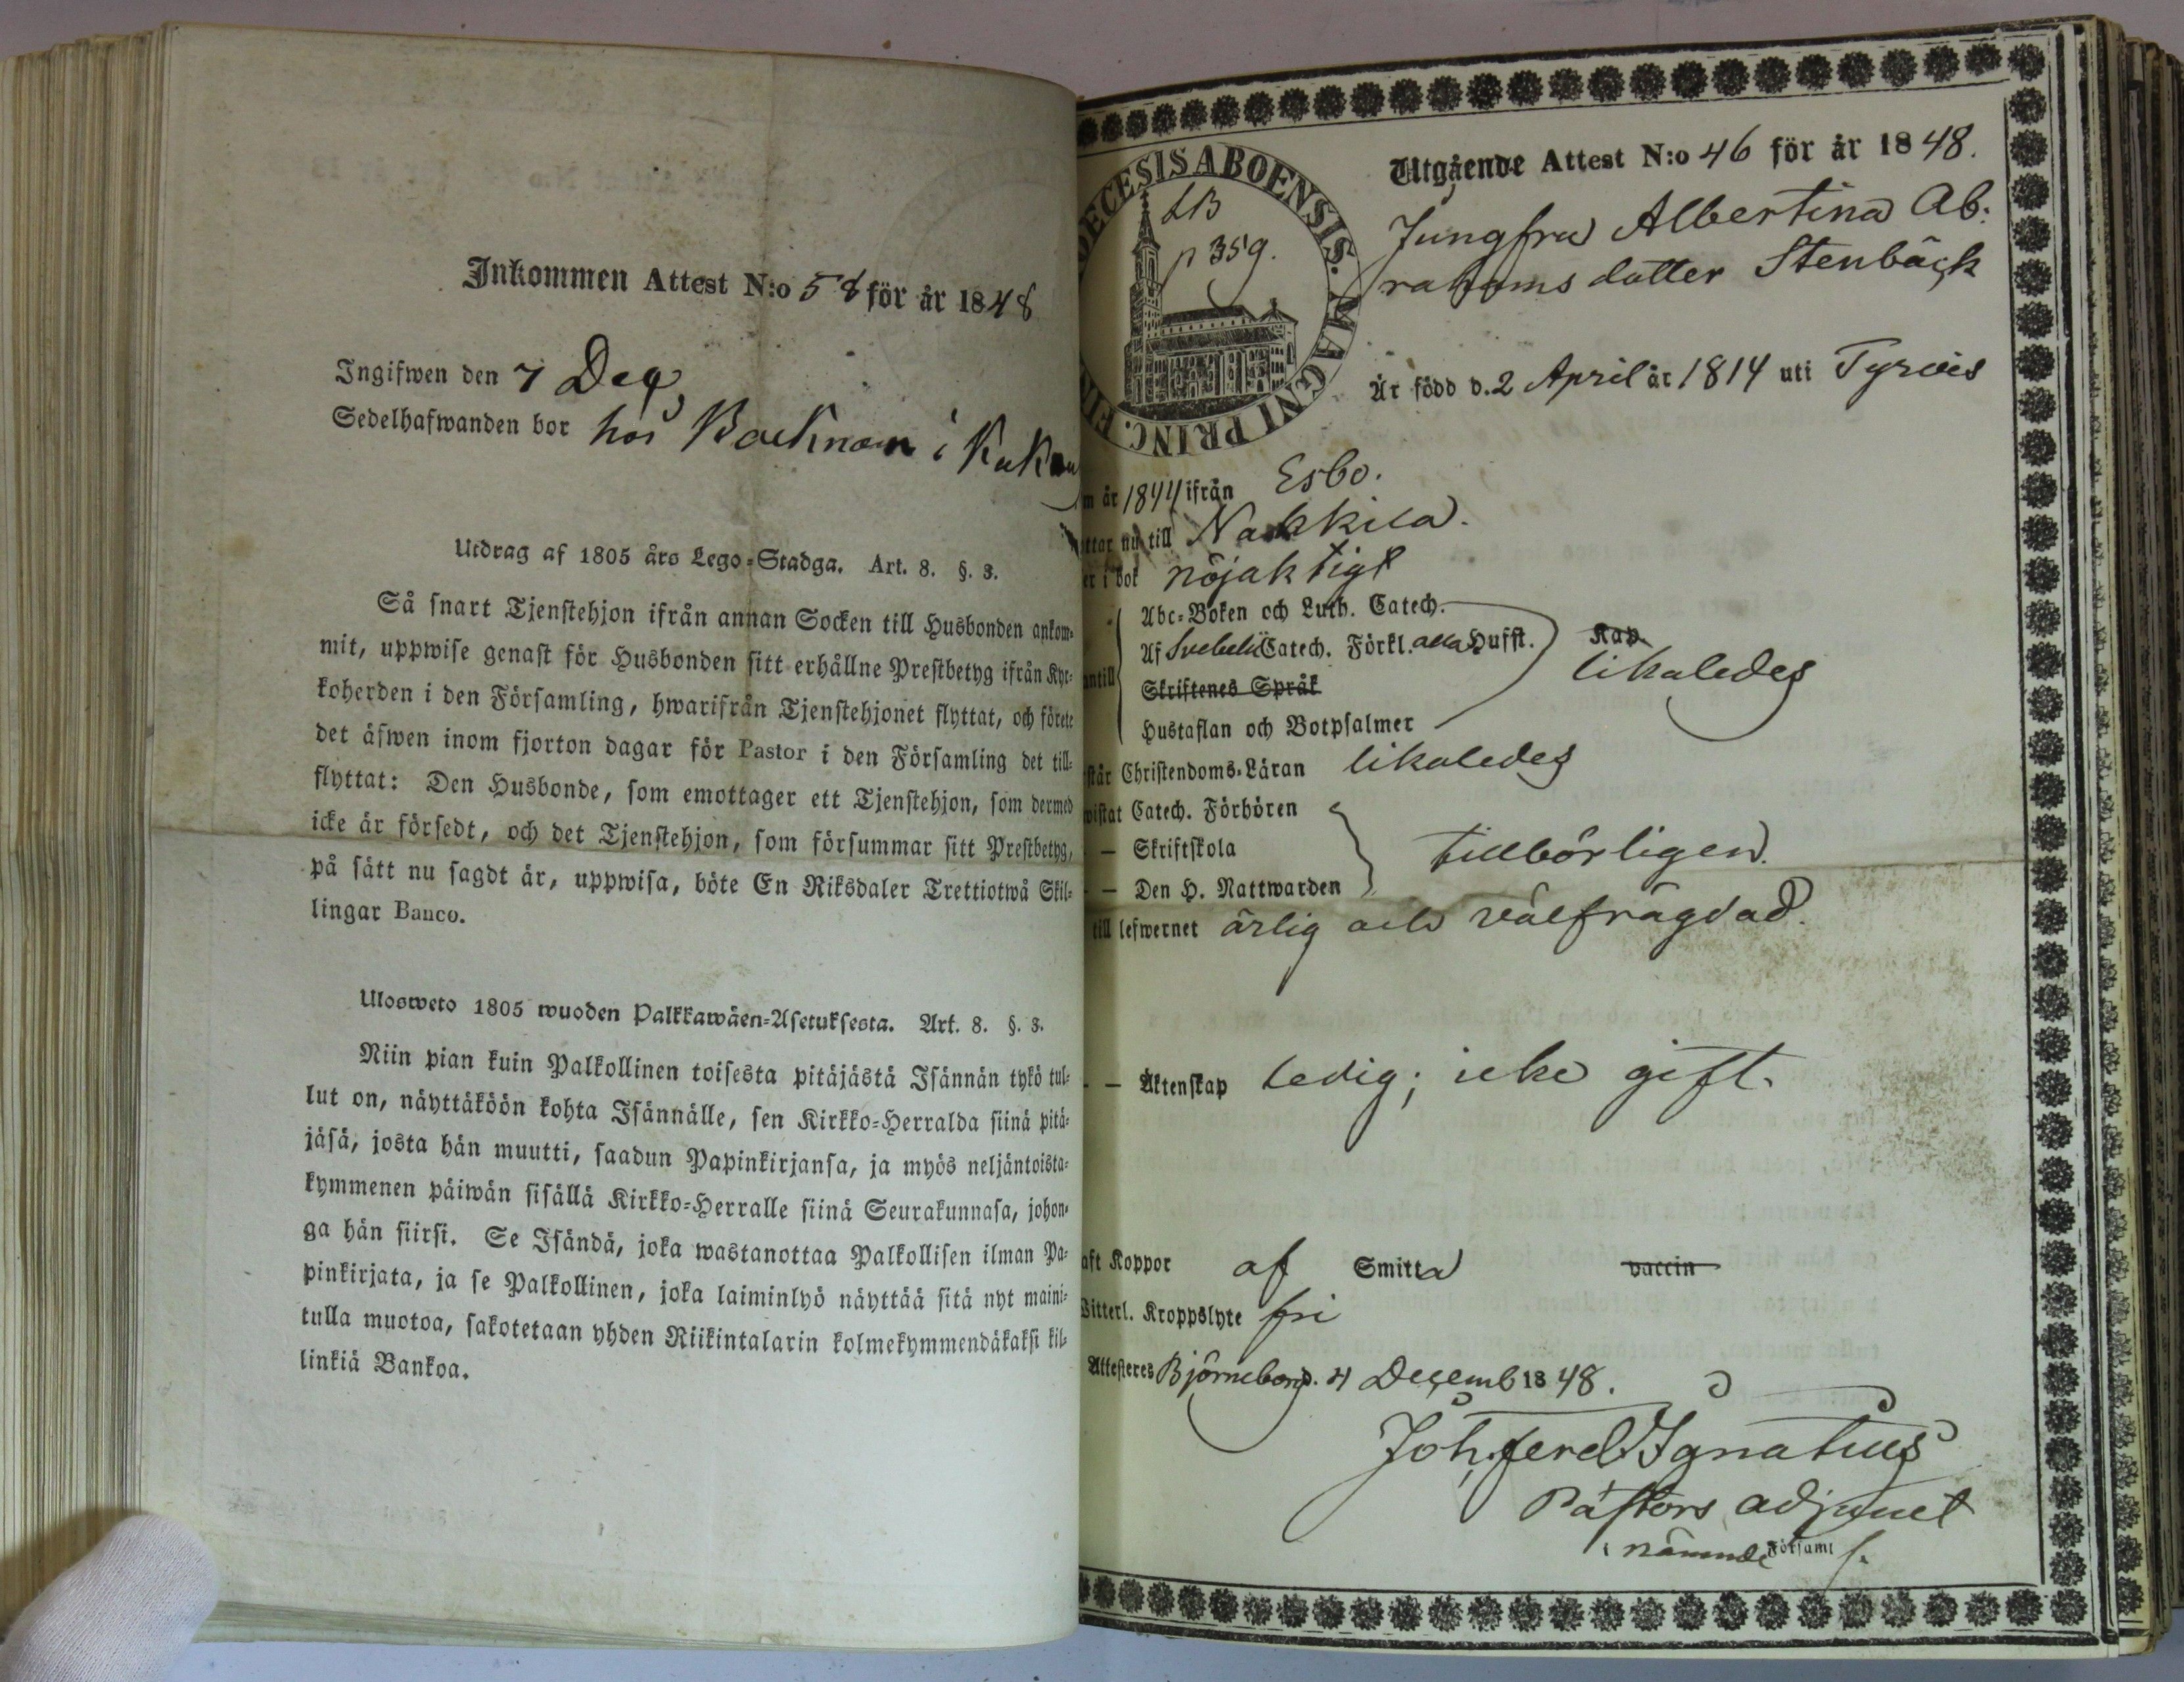 Inkommen Attest N:o 58 för år 1848
Ingifwen den 7 Dec
Sedelhafwanden bor hos Backman i
Utdrag af 1805 års Lego-Stadga. Art. 8. §. 3.
Så snart Tjenstehjon ifrån annan Socken till Husbonden ankom-
mit, uppwise genast för Husbonden sitt erhållne Prestbetyg ifrån Kyr-
koherden i den Församling, hwarifrån Tjenstehjonet flyttat, och förete
det äfwen inom fjorton dagar för Pastor i den Församling det till-
flyttat: Den Husbonde, som emottager ett Tjenstehjon, som dermed
icke är försedt, och det Tjenstehjon, som försummar sitt Prestbetyg,
på sätt nu sagdt är, uppwisa, böte En Riksdaler Trettiotwå Skil-
lingar Banco.
Ulosweto 1805 wuoden Palkkawäen-Asetuksesta. Art. 8. §. 3.
Niin pian kuin Palkollinen toisesta pitäjästä Isännän tykö tul-
lut on, näyttäköön kohta Isännälle, sen Kirkko-Herralda siinä pitä-
jäsä, josta hän muutti, saadun Papinkirjansa, ja myös neljäntoista-
kymmenen päiwän sisällä Kirkko-Herralle siinä Seurakunnasa, johon-
ga hän siirsi. Se Isändä, joka wastanottaa Palkollisen ilman Pa-
pinkirjata, ja se Palkollinen, joka laiminlyö näyttää sitä nyt maini-
tulla muotoa, sakotetaan yhden Riikintalarin kolmekymmendäkaksi kil-
linkiä Bankoa.
ECESIS ABOENSIS. MAGNI PRINC. FIN
LB
p 359.
Utgående Attest N:o 46 för år 1848.
Jungfru Albertina Ab:
rahams dotter Stenbäck
Är född d. 2 April år 1814 uti Tyrvis
m år 1844 ifrån Esbo.
ttar nu till Nakkila.
er i bok nöjaktigt
Abc-Boken och Luth. Catech.
Af Svebelii Catech. Förkl. alla Hufst. Kap.
likaledes
antill
Skriftenes Språk
Hustaflan och Botpsalmer
står Christendoms-Läran likaledes
wistat Catech. Förhören
— Skriftskola tillbörligen.
— Den H. Nattwarden
till lefwernet ärlig och välfrägdad.
— Äktenskap ledig; icke gift.
aft Koppor af Smitta vaccin
Witterl. Kroppslyte fri
Attesteres Björneborg d. 4 Decemb 1848.
Joh. Ferd Ignatius
Pastors adjunct
i nämnde Församl